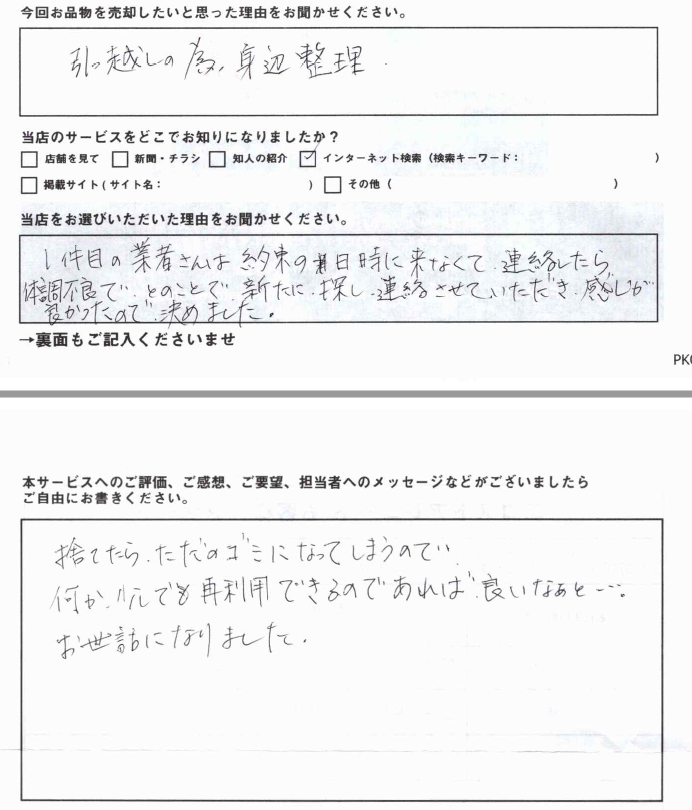 今回お品物を売却したいと思った理由をお聞かせください。
引っ越しの為、身辺整理.
当店のサービスをどこでお知りになりましたか？
□ 店舗を見て □ 新聞・チラシ □ 知人の紹介 ☑ インターネット検索（検索キーワード： ）
□ 掲載サイト（サイト名： ） □ その他（ ）
当店をお選びいただいた理由をお聞かせください。
1件目の業者さんは約束の日時に来なくて、連絡したら
体調不良で、とのことで、新たに探し、連絡させていただき、感じが
良かったので決めました。
→裏面もご記入くださいませ
本サービスへのご評価、ご感想、ご要望、担当者へのメッセージなどがございましたら
ご自由にお書きください。
捨てたら、ただのゴミになってしまうので、
何か でも再利用できるのであれば、良いなぁと…。
お世話になりました.